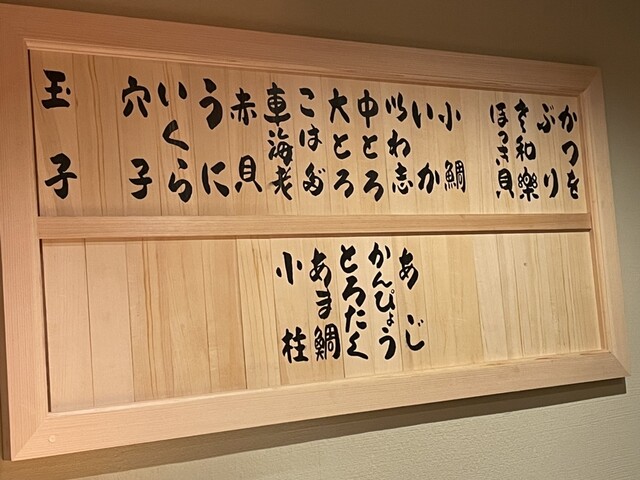 かつを
ぶり
さ和樂
ほっき貝
小鯛
いか
いわ志
中とろ
大とろ
こはだ
車海老
赤貝
うに
いくら
穴子
玉子
あじ
かんぴょう
とろたく
あま鯛
小柱